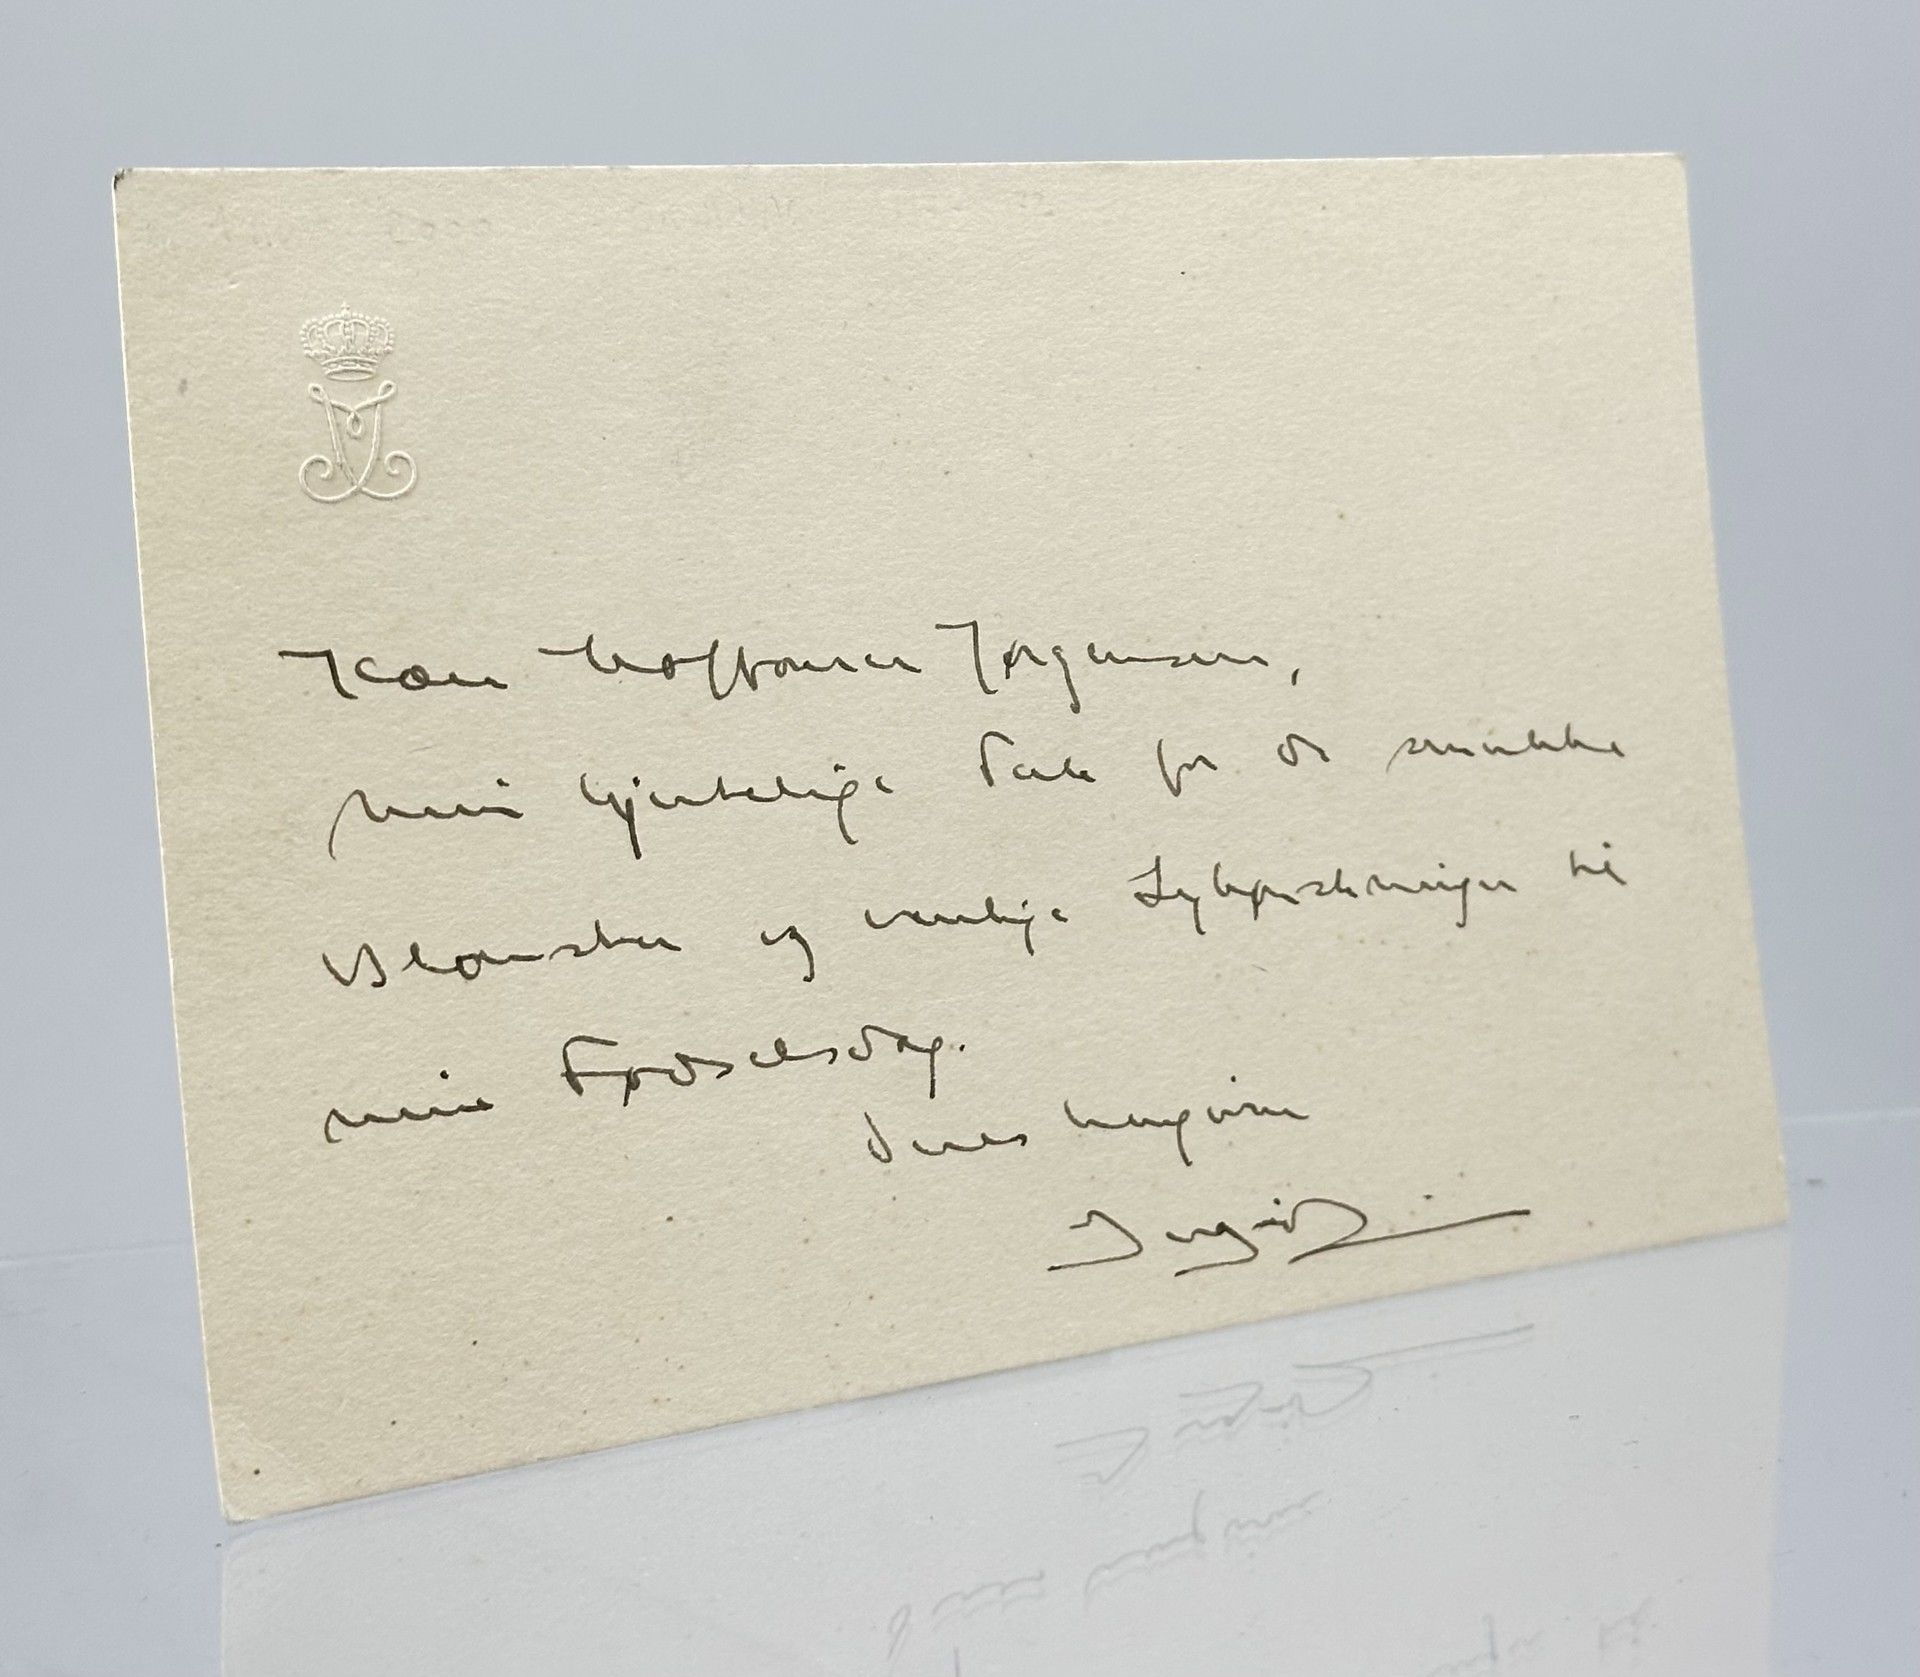 Kære Hoffourer Jørgensen,
min hjertelige Tak for de smukke
Blomster og venlige Lykønskninger til
min Fødselsdag.
Deres hengivne
Ingrid